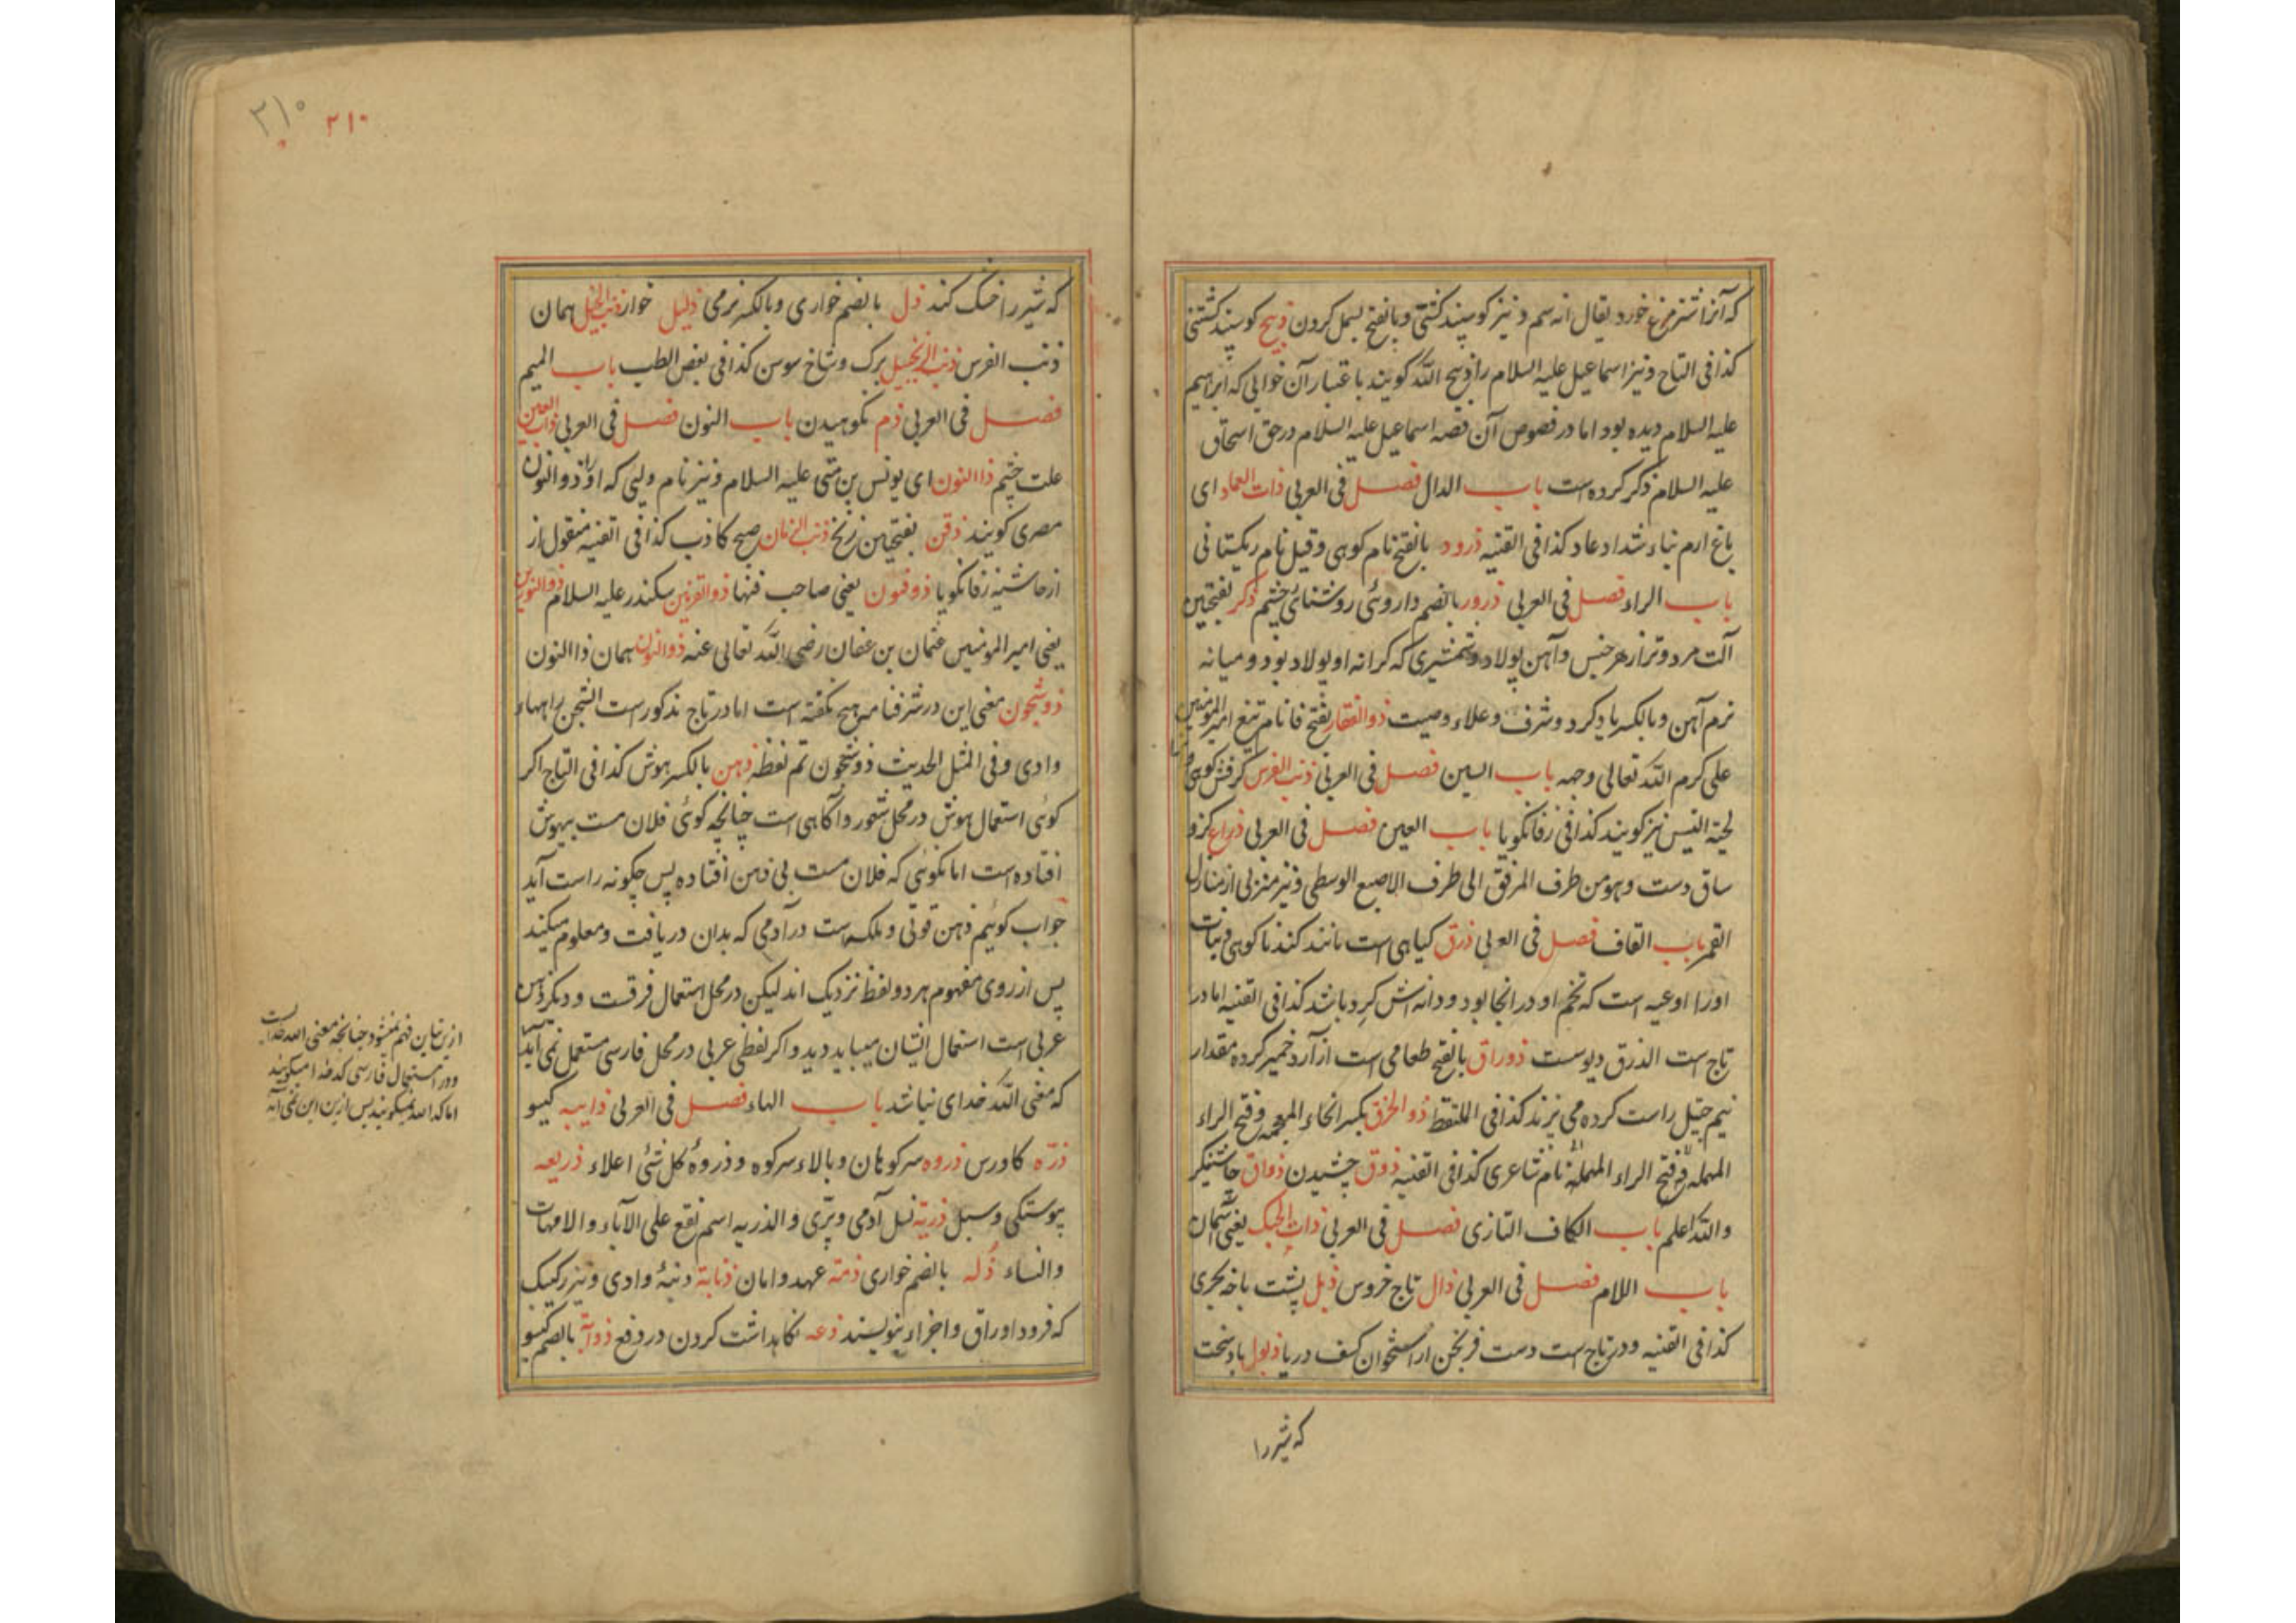 که آنرا شترمرغ خورد یقال انه سم و نیز کوسپند کشتی و بالفتح بسمل کردن ذبیح کوسپند کشتنی
کذا فی التاج و نیز اسماعیل علیه السلام را ذبیح الله کویند باعتبار آن خوابی که ابراهیم
علیه السلام دیده بود اما در فصوص آن قصه اسماعیل علیه السلام در حق اسحاق
علیه السلام ذکر کرده است باب الدال فصل فی العربی ذات العماد ای
باغ ارم بناء شداد عاد کذا فی القنیه ذرود بالفتح نام کوهی و قیل نام ریکستانی
باب الراء فصل فی العربی ذرور بالضم داروئی روشنائی چشم ذکر بفتحتین
آلت مرد و نر از هر جنس و آهن پولاد و شمشیری که کرانه او پولاد بود و میانه
نرم آهن و بالکسر یاد کرد و شرف و علاء وصیت ذوالفقار بفتح فا نام تیغ امیر المؤمنین
علی کرم الله تعالی وجهه باب السین فصل فی العربی ذنب الفرس کرفش کوهی
لحیة التیس نیز کویند کذا فی زفانکویا باب العین فصل فی العربی ذراع کزو
ساق دست و هو من طرف المرفق الی طرف الاصبع الوسطی و نیز منزلی از منازل
القمر باب القاف فصل فی العربی ذرق کیاهی است مانند کندنا کوهی و نبات
اورا اوعیه است که تخم او در انجا بود و دانه اش کرد باشد کذا فی القنیه اما در
تاج است الذرق دیوست ذوراق بالفتح طعامی است از آرد خمیر کرده مقدار
نیم راست کرده می پزند کذا فی الملتقط ذو الخرق بکسر الخاء المعجمه و فتح الراء
المهمله و فتح الراء المهمله نام شاعری کذا فی القنیه ذوق چشیدن ذواق چاشنیکر
والله اعلم باب الکاف التازی فصل فی العربی ذات الحبک یعنی آسمان
باب اللام فصل فی العربی ذال تاج خروس ذبل پشت باخه بحری
کذا فی القنیه و در تاج است دست فرنجن از استخوان کشف دریا ذبول باد سخت
که شیر را
۲۱۰ ۲۱۰
که شیر را خشک کند ذل بالضم خواری و بالکسر نرمی ذلیل خوار ذنب الخیل همان
ذنب الفرس ذنب الزنجبیل برک و شاخ سوسن کذا فی بعض الطب باب المیم
فصل فی العربی ذم نکوهیدن باب النون فصل فی العربی ذاب العین
علت چشم ذا النون ای یونس بن متی علیه السلام و نیز نام ولیی که او را ذوالنون
مصری کویند ذقن بفتحتین زنخ ذنب السرحان صبح کاذب کذا فی القنیه منقول از
از حاشیه زفانکویا ذوفنون یعنی صاحب فنها ذوالقرنین سکندر علیه السلام ذوالنورین
یعنی امیر المؤمنین عثمان بن عفان رضی الله تعالی عنه ذوالنون همان ذا النون
ذو شجون معنی این در شرفنامه هیچ نکفته است اما در تاج مذکور است الشجن راهها
وادی و فی المثل الحدیث ذو شجون تم لفظه ذهن بالکسر هوش کذا فی التاج اکر
کوئی استعمال هوش در محل شعور و آکاهی است چنانچه کوئی فلان مست بیهوش
افتاده است اما نکوئی که فلان مست بی ذهن افتاده پس چکونه راست آید
جواب کوئیم ذهن قوتی و ملکه است در آدمی که بدان دریافت و معلوم میکند
پس از روی مفهوم هر دو لفظ نزدیک اند لیکن در محل استعمال فرقست و دیکر ذهن
عربی است استعمال ایشان میباید دید و اکر لفظی عربی در محل فارسی مستعمل نمی آید
که معنی الله خدای نباشد باب الهاء فصل فی العربی ذایبه کیسو
ذره کاورس ذروه سر کوهان و بالاء سر کوه و ذروة کل شئی اعلاء ذریعه
پیوستکی و سبیل ذریة نسل آدمی و پری و الذریه اسم یقع علی الآباء و الامهات
والنساء ذله بالضم خواری ذمة عهد و امان ذنابة دنبهٔ وادی و نیز رکیک
که فرود اوراق و اجزاء بنویسند ذعه نکاهداشت کردن در دفع ذوابه بالضم کیسو
ازین تباین فهم نمیشود چنانچه معنی الله خداست
و در استعمال فارسی که خدا میکویند
اما که الله نمیکویند پس ازین این نمی آید